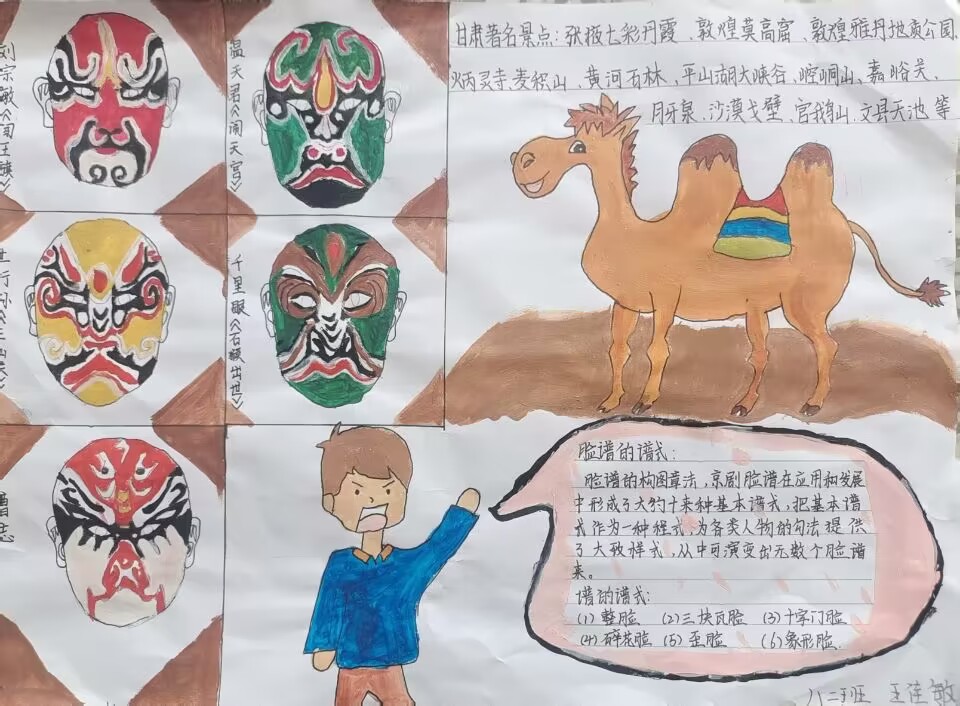 甘肃著名景点：张掖七彩丹霞、敦煌莫高窟、敦煌雅丹地质公园、
炳灵寺麦积山、黄河石林、平山湖大峡谷、崆峒山、嘉峪关、
月牙泉、沙漠戈壁、官鹅山、文县天池 等
刘宗敏《闯王旗》
温天君《闹天宫》
土行孙《三山关》
千里眼《石猴出世》
曹志
脸谱的谱式：
脸谱的构图章法，京剧脸谱在应用和发展
中形成了大约十来种基本谱式，把基本谱
式作为一种程式，为各类人物的勾法提供
了大致样式，从中可演变出无数个脸谱
来。
谱的谱式：
(1) 整脸 (2) 三块瓦脸 (3) 十字门脸
(4) 碎花脸 (5) 歪脸 (6) 象形脸.
八二班 王佳敏